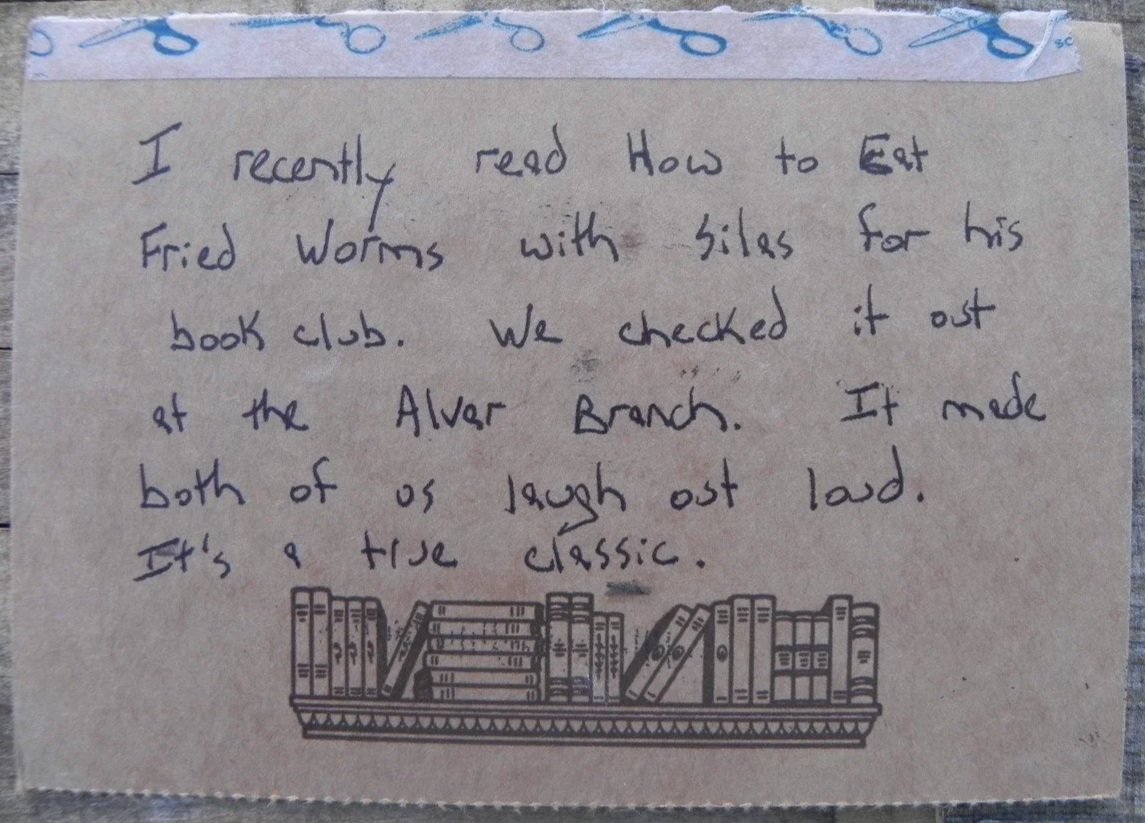 I recently read How to Eat
Fried Worms with Silas for his
book club. We checked it out
at the Alvar Branch. It made
both of us laugh out loud.
It's a true classic.